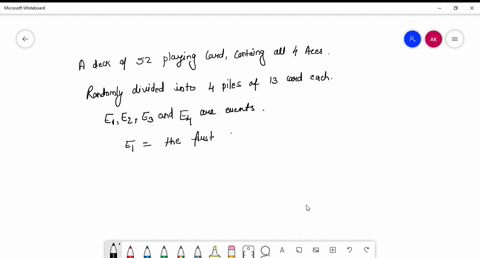 Microsoft Whiteboard
AK
A deck of 52 playing card, containg all 4 Aces.
Randomly divided into 4 piles of 13 card each.
E1, E2, E3 and E4 are events.
E1 = the first